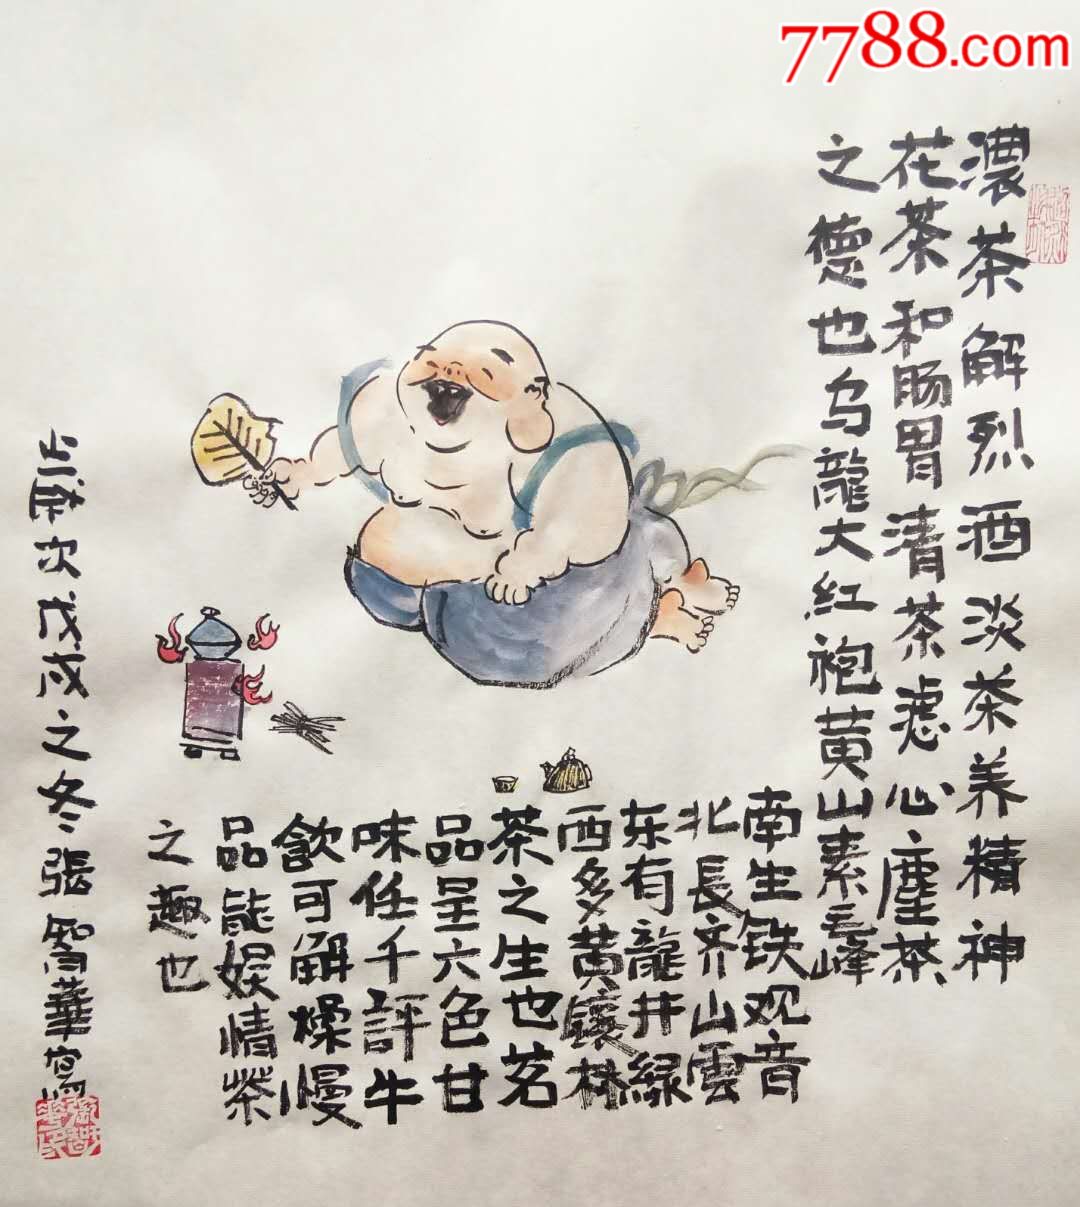 7788.com
濃茶解烈酒淡茶养精神
花茶和肠胃清茶滤心塵茶
之德也乌龍大红袍黄山素毛峰
南生铁观音
北長齐山雲
东有龍井緑
西多黄镶林
茶之生也茗
品呈六色甘
味任千評牛
飲可解楺慢
品能娱情茶
之趣也
次戊戌之冬張智華